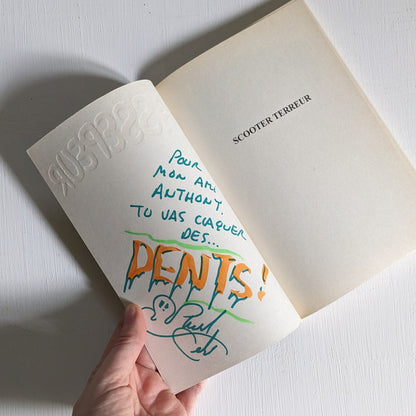 POUR
MON AMI
ANTHONY.
TU VAS CLAQUER
DES...
DENTS!
SCOOTER TERREUR